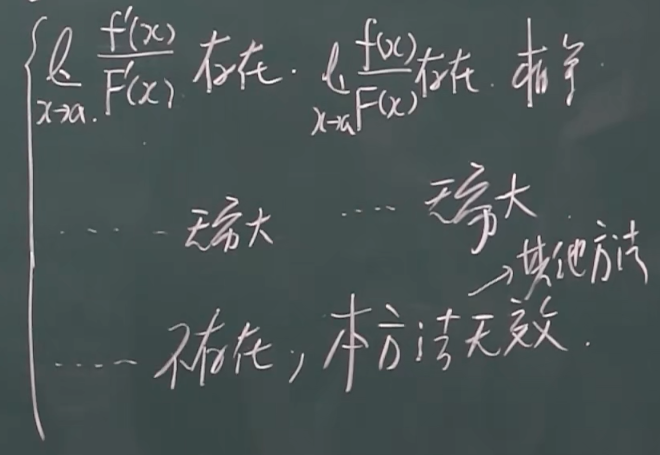 lim x→a f'(x)/F'(x) 存在. lim x→a f(x)/F(x) 存在. 相等.
...... 无穷大 .... 无穷大
→其他方法
..... 不存在, 本方法无效.